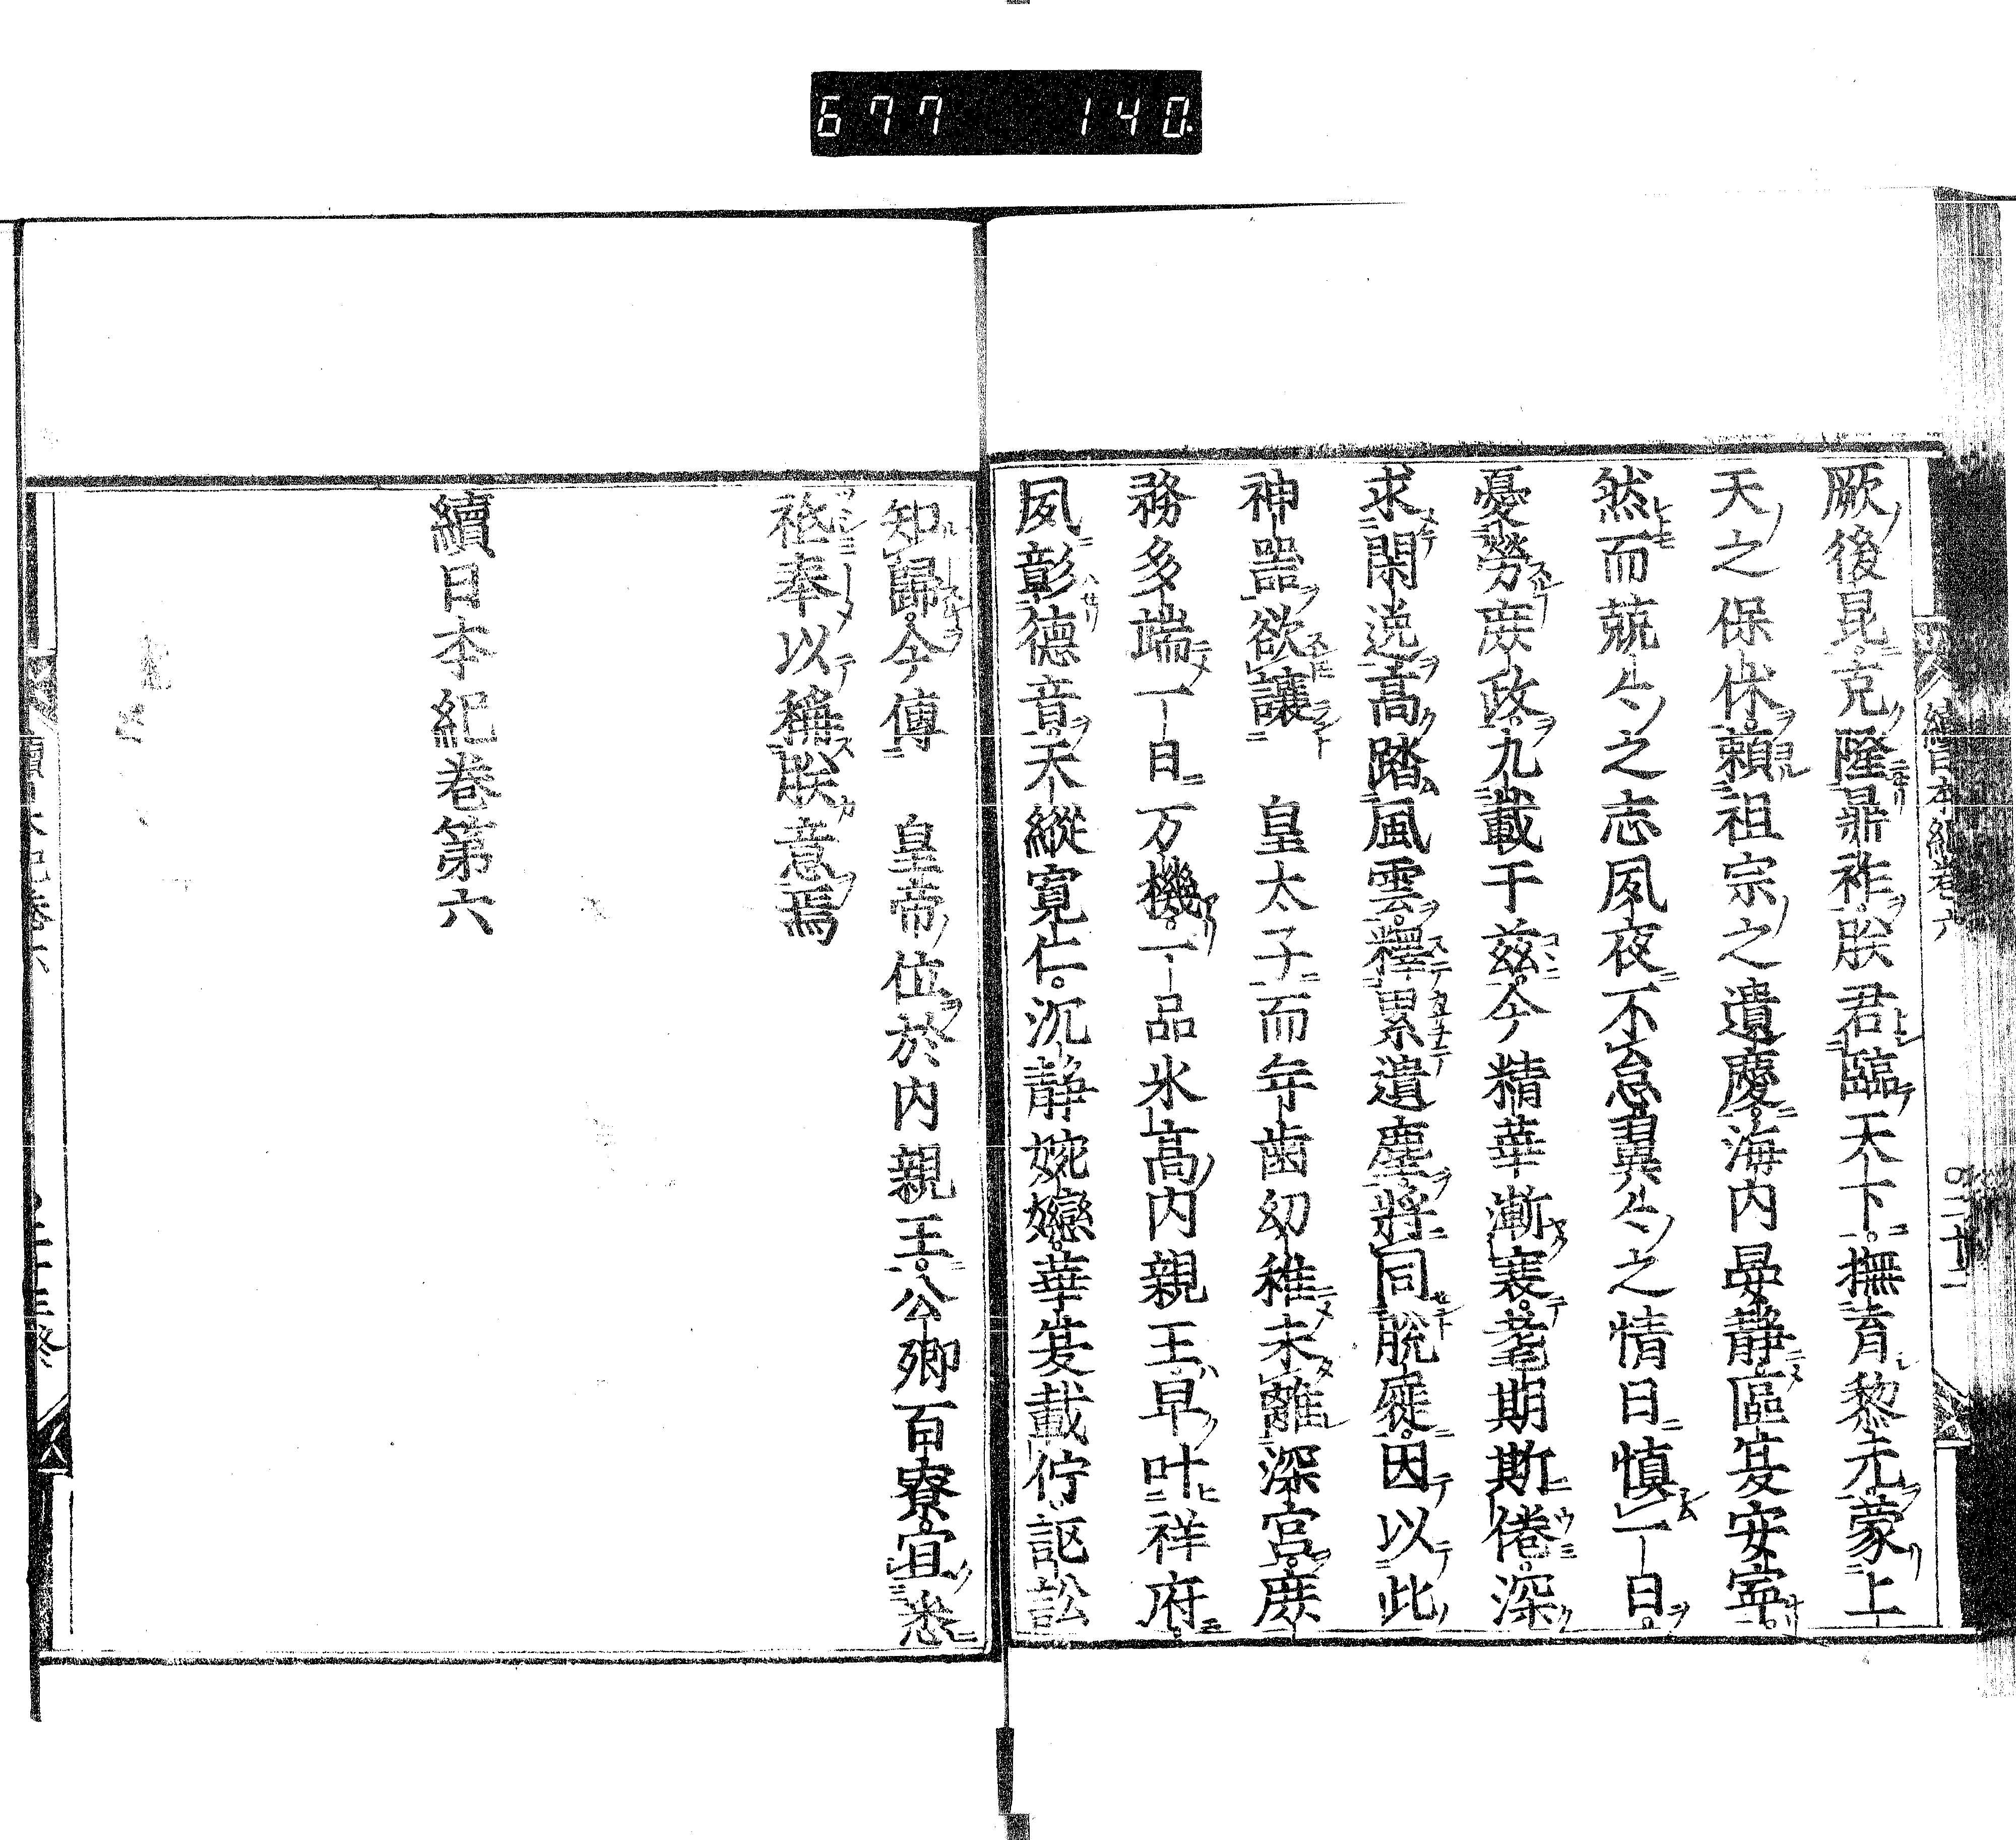 677 140
續日本紀卷六
厥後昆克隆鼎祚朕君臨天下。撫育黎元蒙上
天之保休。賴祖宗之遺慶。海内晏靜。區夏安寧。
然而兢々之志夙夜不怠翼々之情日慎一日。
憂勞庶政。九載于兹。今精華漸衰。耄期斯倦。深
求閑逸高踏風雲。釋累遺塵。將同脱屣。因以此
神器欲讓　皇太子而年齒幼稚未離深宮。庶
務多端一日万機。一品氷高内親王早叶祥府。
夙彰德音。天縱寬仁。沉靜婉孌。華夏載佇。謳訟
知歸。今傳　皇帝位於内親王。公卿百寮。宜悉
祗奉以稱朕意焉
續日本紀卷第六